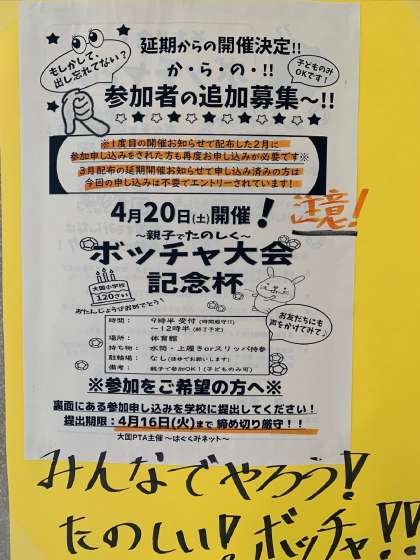 もしかして、
出し忘れてない？
延期からの開催決定!!
か・ら・の・!!
子どものみ
OKです！
参加者の追加募集～!!
※1度目の開催お知らせで配布した2月に
参加申し込みをされた方も再度お申し込みが必要です※
3月配布の延期開催お知らせで申し込み済みの方は
今回の申し込みは不要でエントリーされています！
注意！
4月20日(土)開催！
～親子でたのしく～
ボッチャ大会
記念杯
大国小学校
120さい！
おたんじょうびおめでとう！
お友だちにも
声をかけてみて♪
時間： 9時半 受付（時間厳守!!）
～12時半（終了予定）
場所： 体育館
持ち物： 水筒・上履きorスリッパ持参
駐輪場： なし（徒歩でお願いします）
備考： 親子で参加OK！（子どものみ可）
※参加をご希望の方へ※
裏面にある参加申し込みを学校に提出してください！
提出期限：4月16日(火)まで 締め切り厳守！！
大国PTA主催 ～はぐくみネット～
みんなでやろう！
たのしい！ボッチャ!!